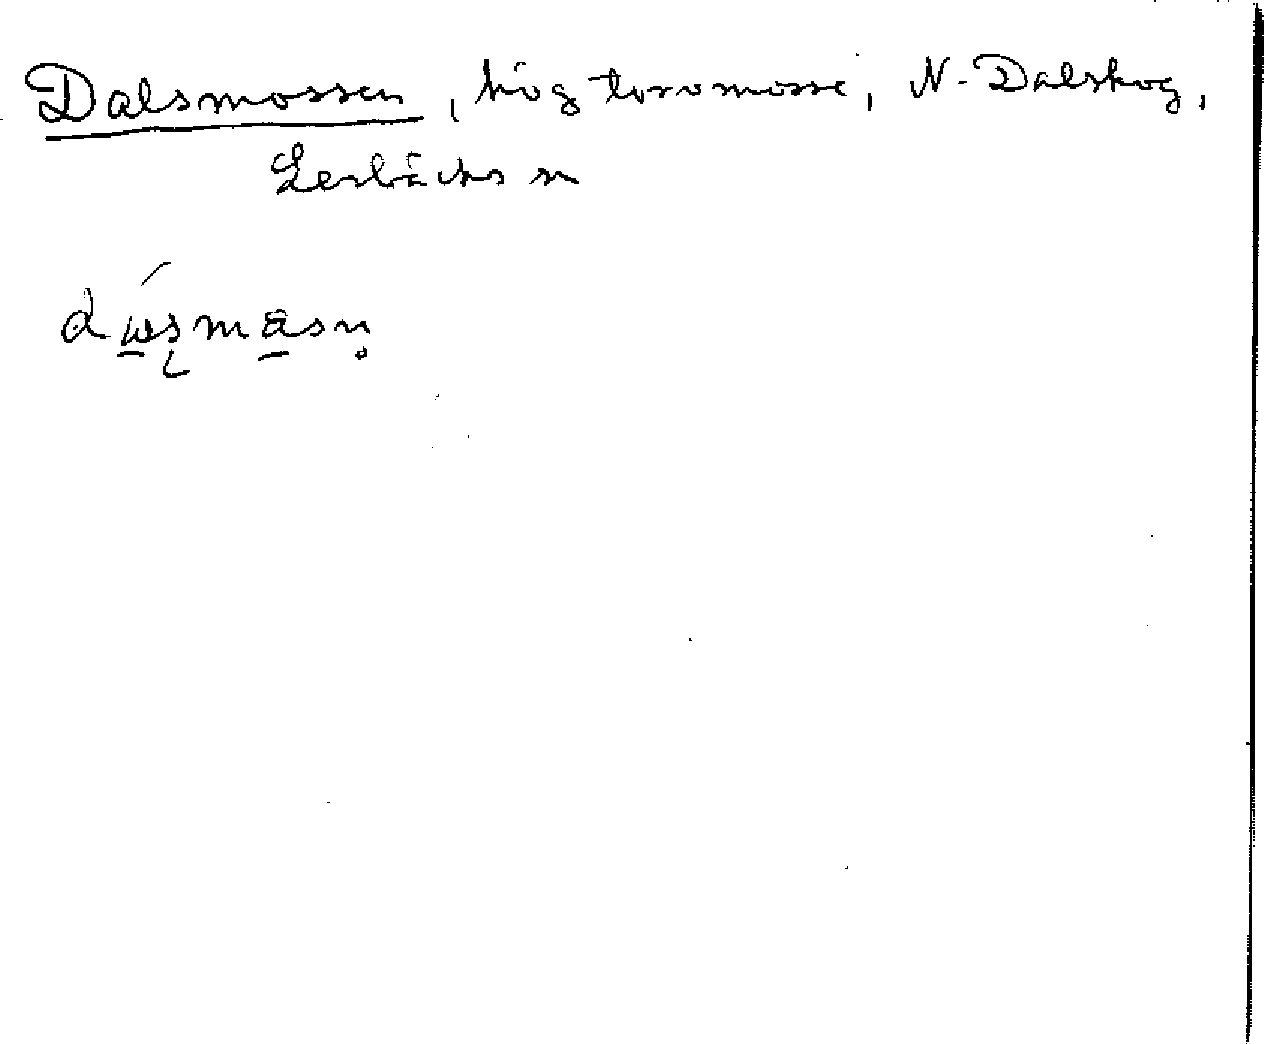 Dalsmossen, hög torvmosse, N. Dalskog,
Lerbäcks sn